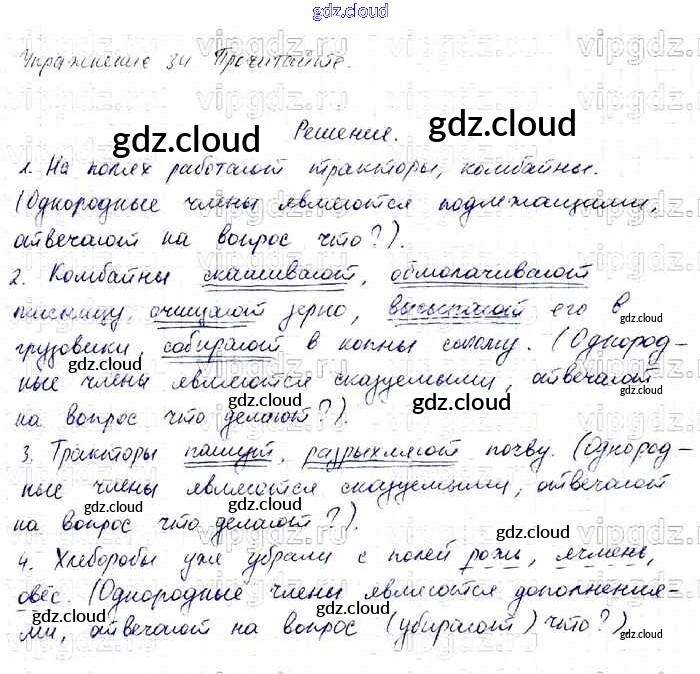 gdz.cloud
Упражнение 34 Прочитайте.
gdz.cloud Решение. gdz.cloud
1. На полях работают тракторы, комбайны.
(Однородные члены являются подлежащими,
отвечают на вопрос что?).
2. Комбайны скашивают, обмолачивают
пшеницу, очищают зерно, высыпают его в
грузовики, собирают в копны солому. (Однород-
ные члены являются сказуемыми, отвечают
на вопрос что делают?).
3. Тракторы пашут, разрыхляют почву. (Однород-
ные члены являются сказуемыми, отвечают
на вопрос что делают?).
4. Хлеборобы уже убрали с полей рожь, ячмень,
овёс. (Однородные члены являются дополнения-
ми, отвечают на вопрос (убирают) что?)